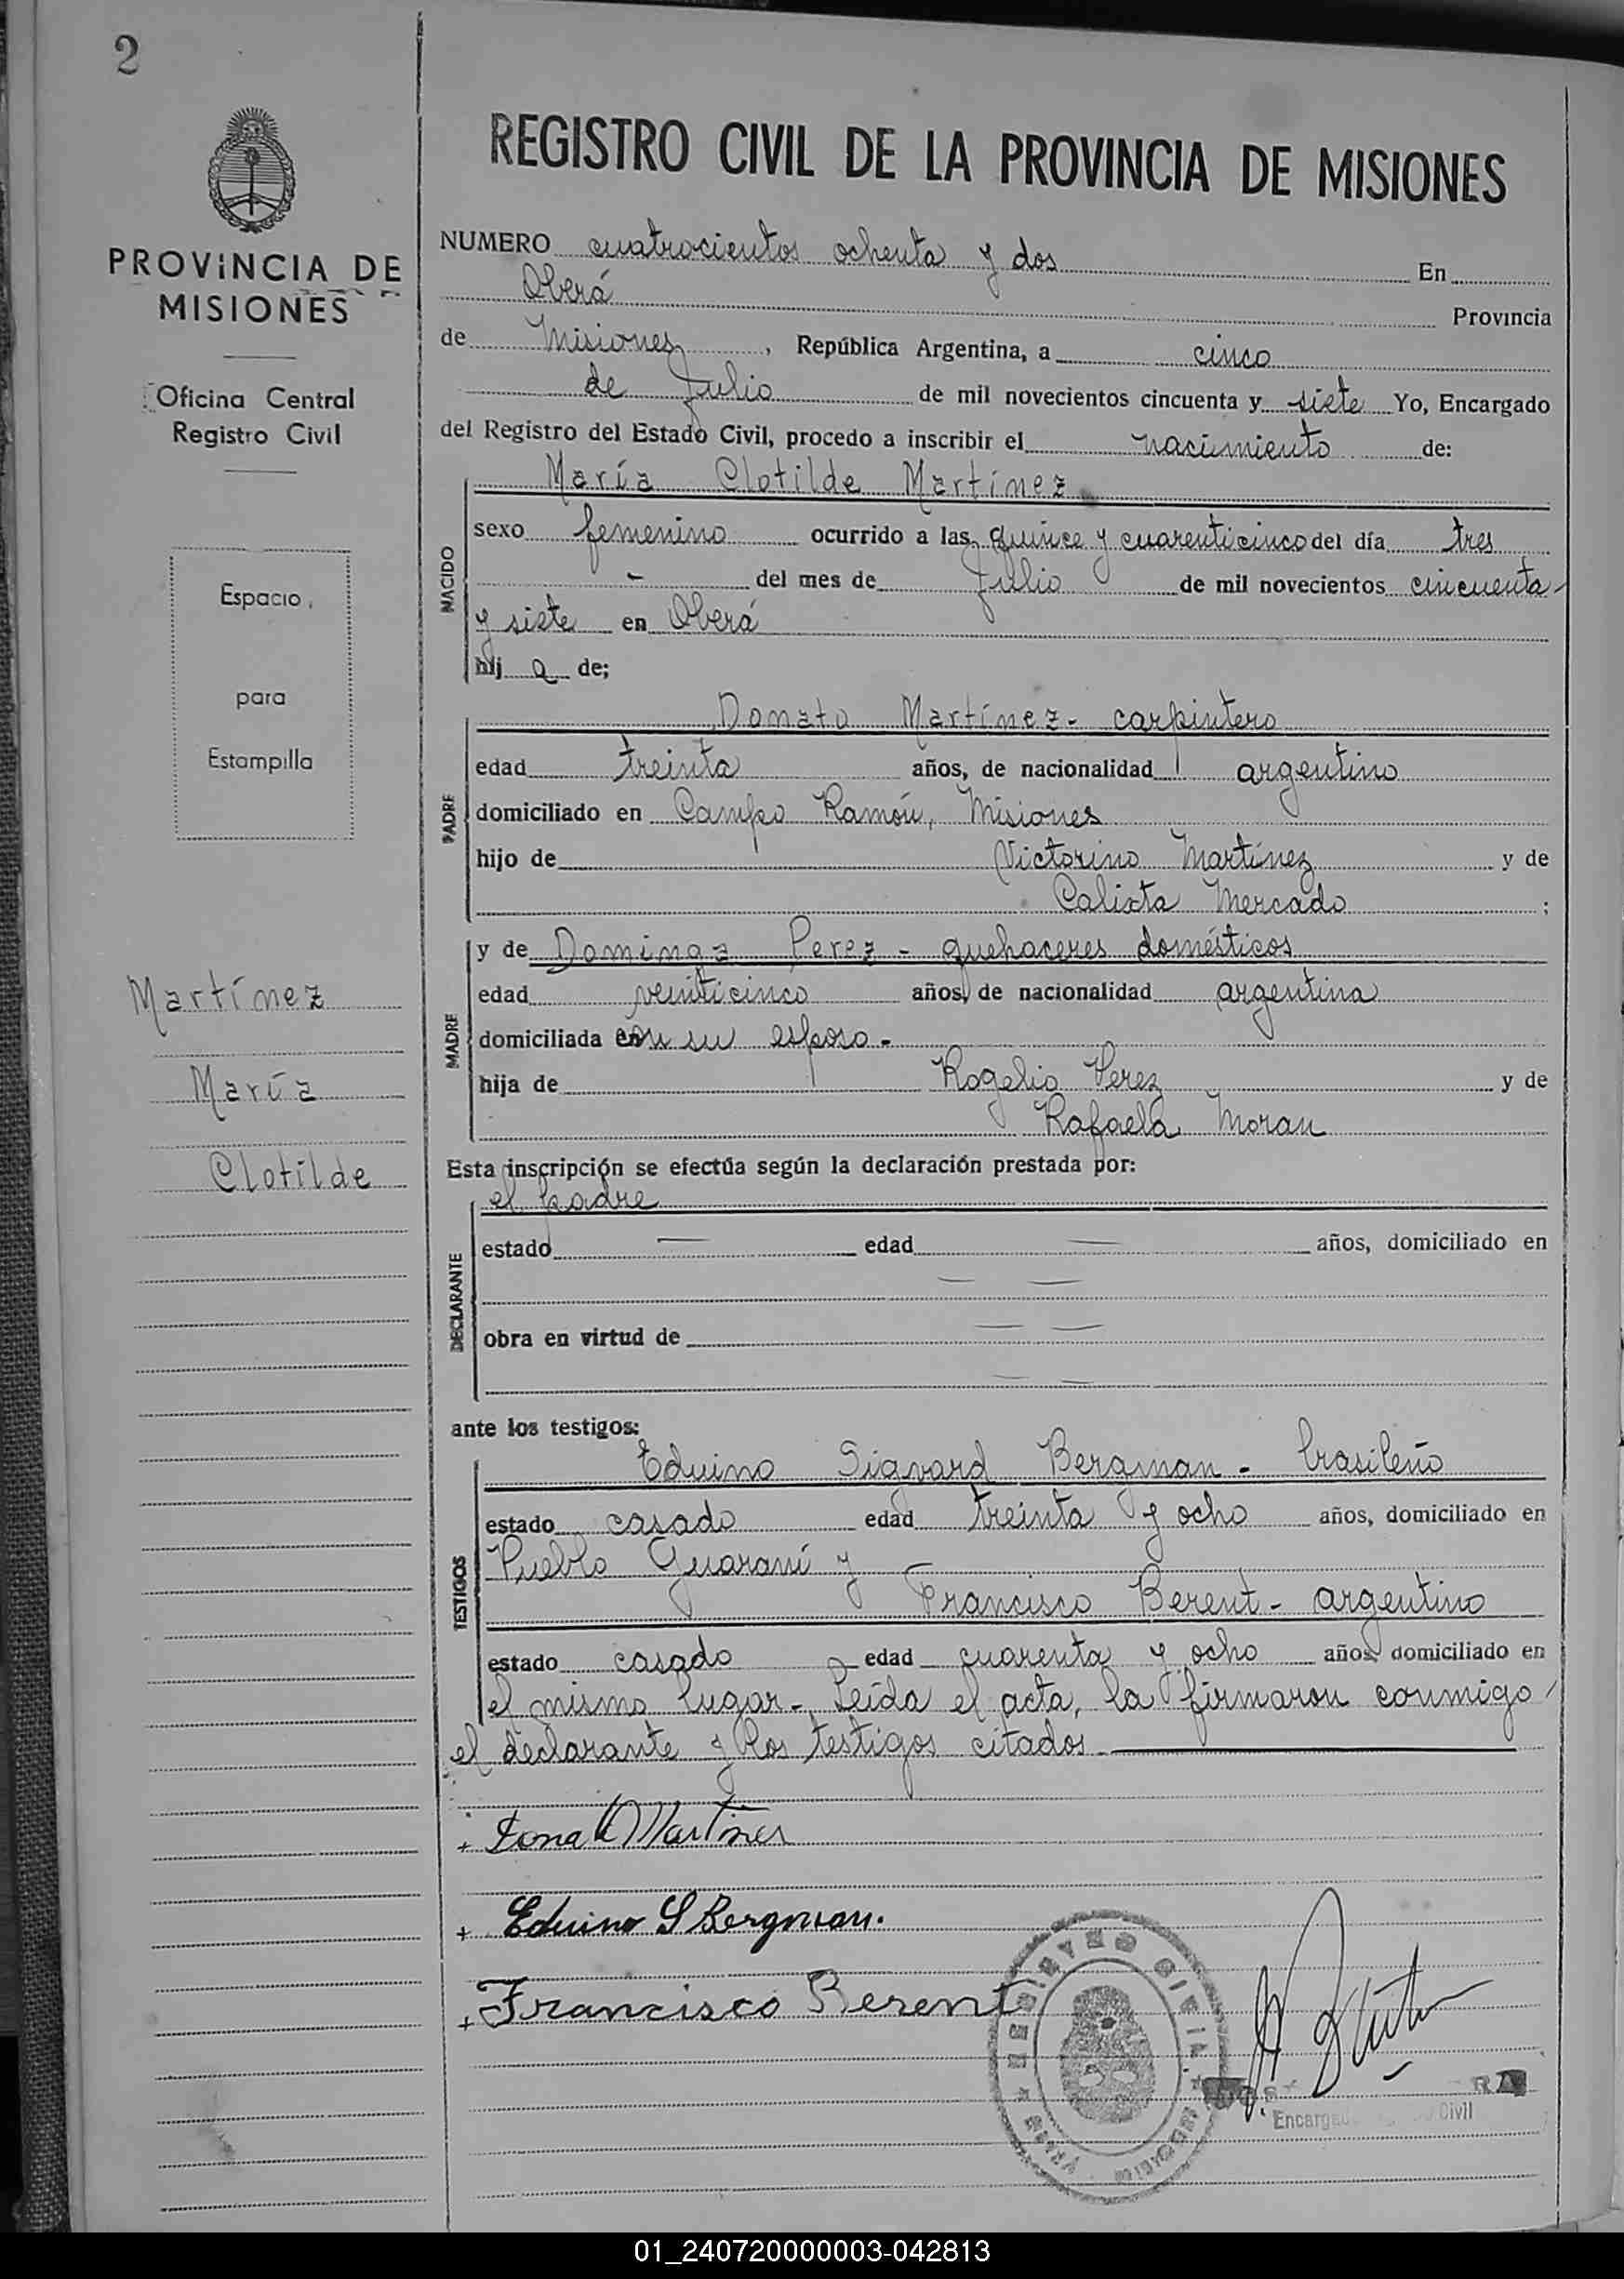 2
PROVINCIA DE
MISIONES
Oficina Central
Registro Civil
Espacio
para
Estampilla
Martínez
María
Clotilde
REGISTRO CIVIL DE LA PROVINCIA DE MISIONES
NUMERO cuatrocientos ochenta y dos En
Oberá Provincia
de Misiones, República Argentina, a cinco
de Julio de mil novecientos cincuenta y siete Yo, Encargado
del Registro del Estado Civil, procedo a inscribir el nacimiento de:
NACIDO
María Clotilde Martínez
sexo femenino ocurrido a las quince y cuarenticinco del día tres
- del mes de Julio de mil novecientos cincuenta
y siete en Oberá
hij a de;
PADRE
Donato Martínez - carpintero
edad treinta años, de nacionalidad argentino
domiciliado en Campo Ramón, Misiones
hijo de Victorino Martínez y de
Calixta Mercado ;
MADRE
y de Dominga Perez - quehaceres domésticos
edad veinticinco años, de nacionalidad argentina
domiciliada con su esposo -
hija de Rogelio Perez y de
Rafaela Moran
Esta inscripción se efectúa según la declaración prestada por:
DECLARANTE
el padre
estado — edad — años, domiciliado en
— —
obra en virtud de — —
— —
ante los testigos:
TESTIGOS
Eduino Sigvard Bergman - brasileño
estado casado edad treinta y ocho años, domiciliado en
Pueblo Guaraní y
Francisco Berent - argentino
estado casado edad cuarenta y ocho años, domiciliado en
el mismo lugar - Leída el acta, la firmaron conmigo
el declarante y los testigos citados
+ Donato Martinez
+ Eduino S Bergman.
+ Francisco Berent
REGISTRO CIVIL
MISIONES
Encargado Civil
01_240720000003-042813